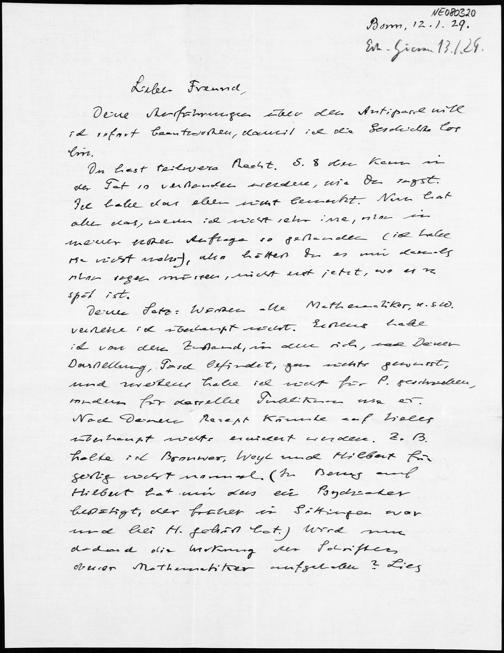 NE080320
Bonn, 12.1.29.
Erh. 13.1.29.
Lieber Freund,
Deine Ausführungen über den will
ich sofort beantworten, damit ich die Geschichte los
bin.
Du hast teilweise Recht. S. 8 kann in
der Tat so verstanden werden, wie Du sagst.
Ich habe das eben nicht bemerkt. Nun hat
aber das, wenn ich nicht sehr irre, schon in
meiner Auflage so gestanden (ich habe
sie nicht mehr), also hättest Du es mir damals
schon sagen müssen, nicht erst jetzt, wo es zu
spät ist.
Deinen Satz: Werden alle Mathematiker, u.s.w.
verstehe ich überhaupt nicht. Erstens habe
ich von dem Zustand, in dem sich, nach Deiner
Darstellung, Pasch befindet, gar nichts gewusst,
und zweitens habe ich nicht für P. geschrieben,
sondern für dasselbe Publikum wie er.
Nach Deinem Rezept könnte auf Vieles
überhaupt nichts erwidert werden. Z.B.
halte ich Brouwer, Weyl und Hilbert für
geistig nicht normal. (In Bezug auf
Hilbert hat mir das ein Psychiater
bestätigt, der früher in Göttingen war
und bei H. gehört hat.) Wird nun
dadurch die Wirkung der Schriften
dieser Mathematiker aufgehoben? Lies